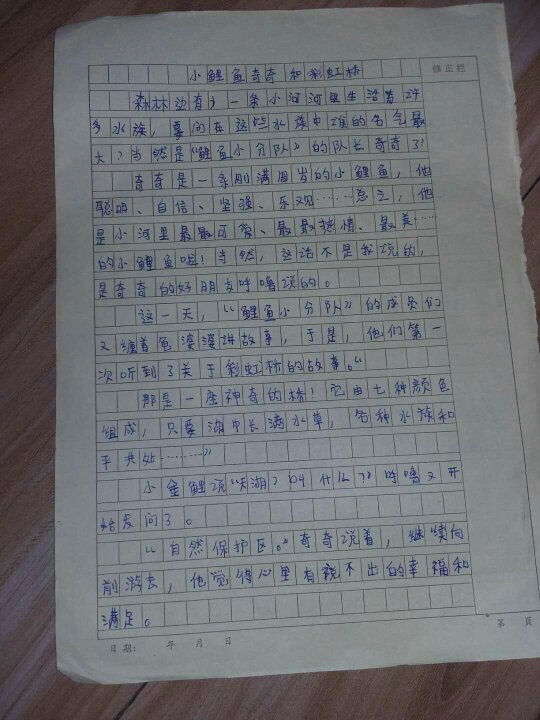 小鲤鱼奇奇和彩虹桥
修正栏
森林边有一条小河河里生活着许
多水族，要问在这些水族中谁的名气最
大？当然是“鲤鱼小分队”的队长奇奇了！
奇奇是一条刚满周岁的小鲤鱼，他
聪明、自信、坚强、乐观……总之，他
是小河里最最可爱、最最热情、最美……
的小鲤鱼啦！当然，这话不是我说的，
是奇奇的好朋友呼噜说的。
这一天，“鲤鱼小分队”的成员们
又缠着龟婆婆讲故事，于是，他们第一
次听到了关于彩虹桥的故事。“
那是一座神奇的桥！它由七种颜色
组成，只要湖中长满水草，各种水族和
平共处………”
小金鲤说“天湖？叫什么？”呼噜又开
始发问了。
“自然保护区。”奇奇说着，继续向
前游去，他觉得心里有说不出的幸福和
满足。
日期： 年 月 日
第 页